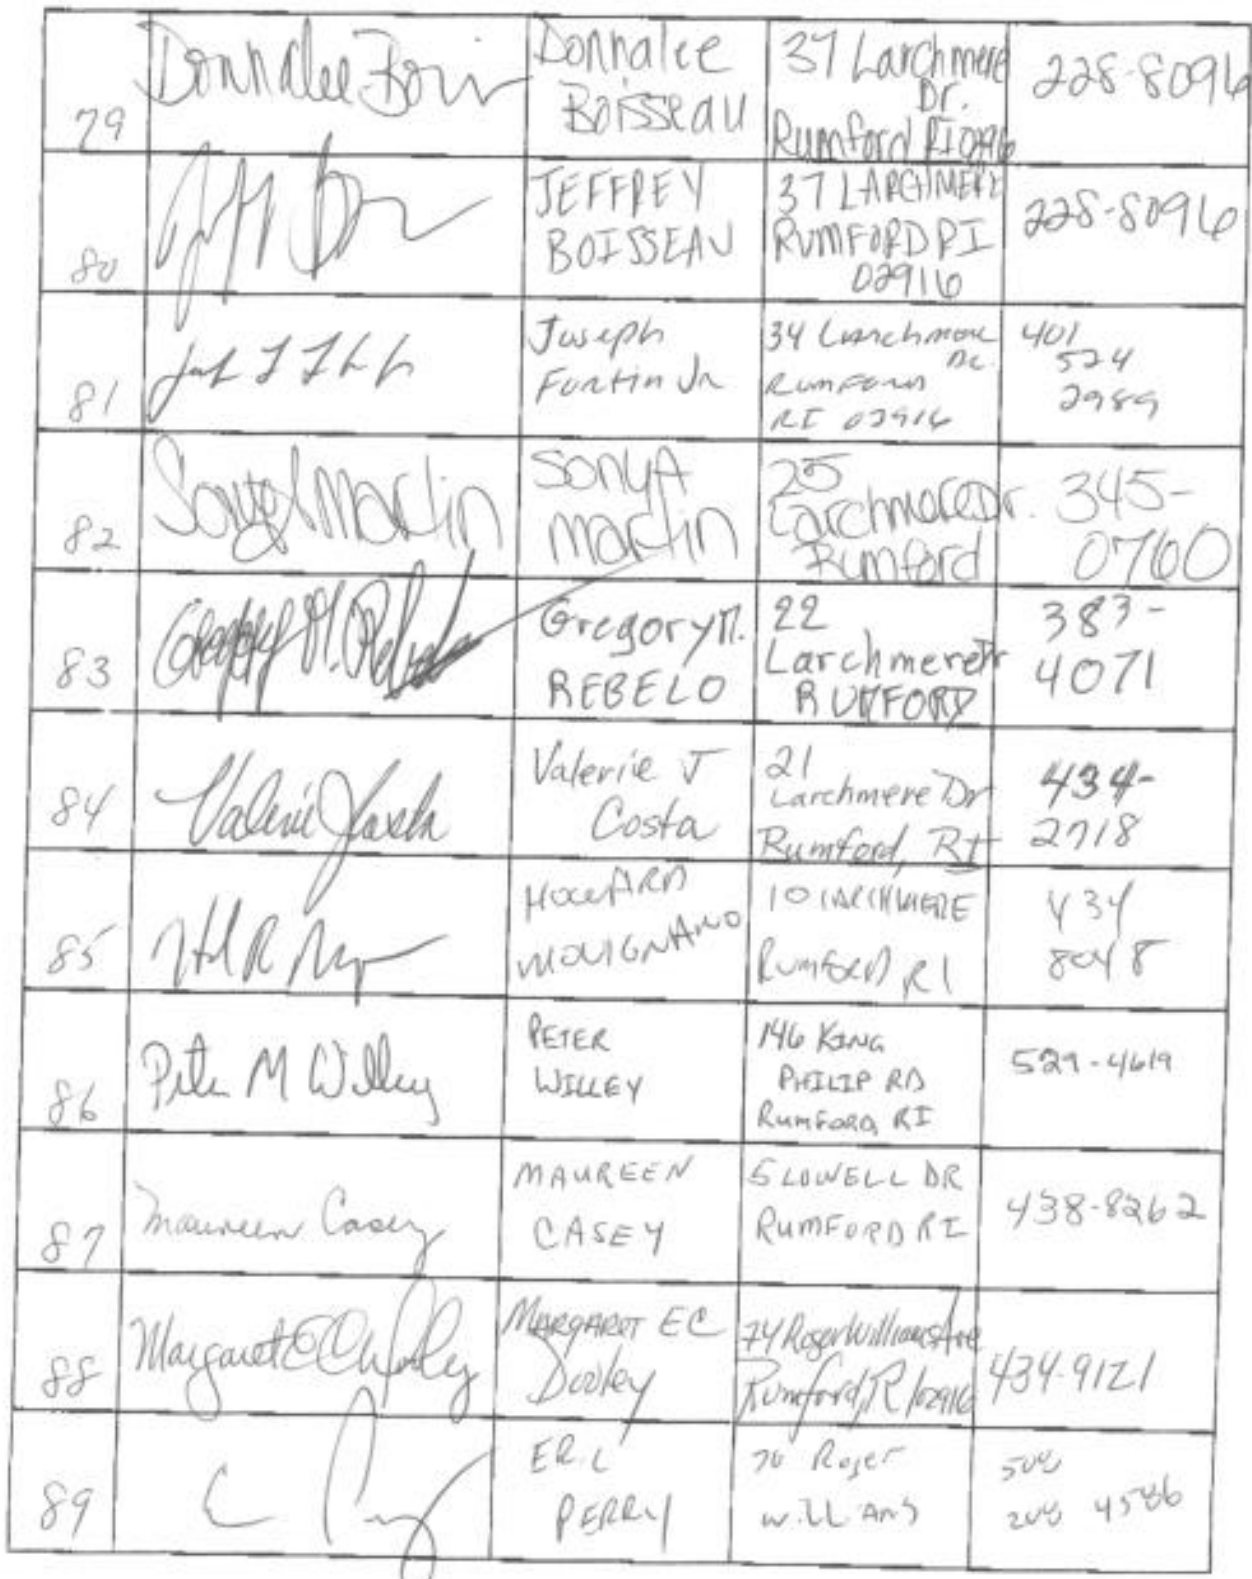 79
Donnalee Bois
Donnalee
Boisseau
37 Larchmere
Dr.
Rumford RI 02916
228-8096
80
JEFFREY
BOISSEAU
37 LARCHMERE
RUMFORD RI
02916
228-8096
81
Joseph
Fortin Jr
34 Larchmere
Dr.
Rumford
RI 02916
401
524
2989
82
Sonya Martin
SONYA
Martin
25
Larchmere Dr.
Rumford
345-
0760
83
Gregory M. Rebelo
Gregory M.
REBELO
22
Larchmere Dr
RUMFORD
383-
4071
84
Valerie J Costa
Valerie J
Costa
21
Larchmere Dr
Rumford, RI
434-
2718
85
HOWARD
10 LARCHMERE
RUMFORD RI
434
8048
86
Peter M Willey
PETER
WILLEY
146 KING
PHILIP RD
RUMFORD, RI
529-4619
87
Maureen Casey
MAUREEN
CASEY
5 LOWELL DR
RUMFORD RI
438-8262
88
Margaret EC Dooley
MARGARET EC
Dooley
74 Roger Williams Ave
Rumford, RI 02916
434-9121
89
ERIC
PERRY
70 Roger
Williams
508
208 4586